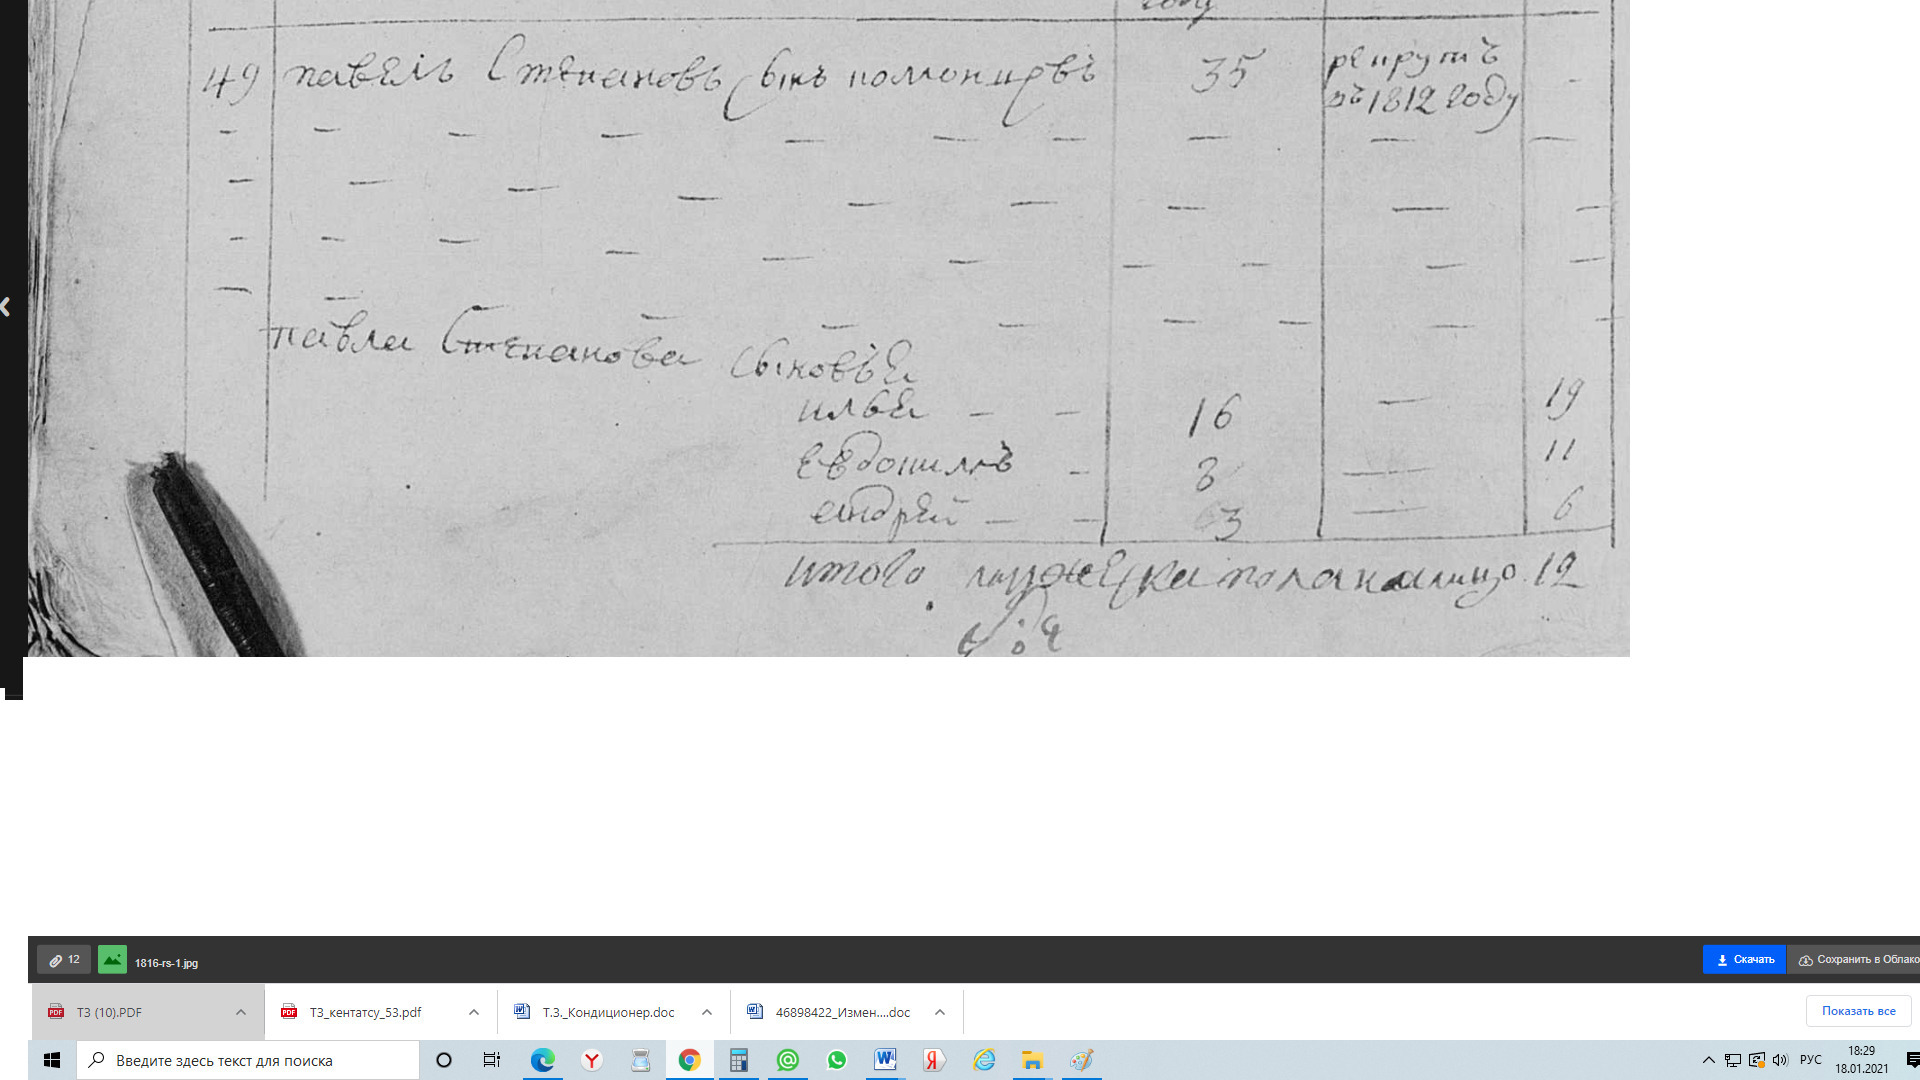 году
49 павелъ Степановъ сынъ 35 рекрутъ
въ 1812 году
павла Степанова сыновья
илья 16 19
евдокимъ 8 11
андрей 3 6
итого мужеска пола налицо 12
12
1816-rs-1.jpg
Скачать
Сохранить в Облако
ТЗ (10).PDF
ТЗ_кентатсу_53.pdf
Т.З._Кондиционер.doc
46898422_Измен....doc
Показать все
Введите здесь текст для поиска
РУС
18:29
18.01.2021